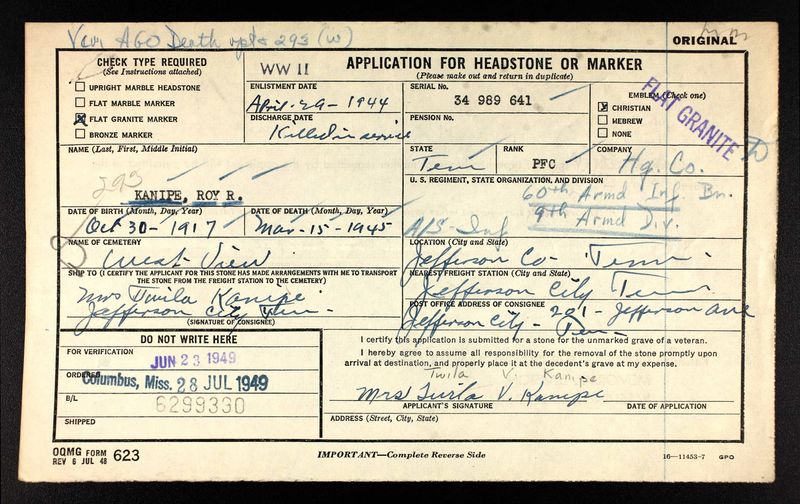 Veri AGO Death rpt 293 (W)
ORIGINAL
CHECK TYPE REQUIRED
(See Instructions attached)
UPRIGHT MARBLE HEADSTONE
FLAT MARBLE MARKER
FLAT GRANITE MARKER
BRONZE MARKER
WW II
APPLICATION FOR HEADSTONE OR MARKER
(Please make out and return in duplicate)
ENLISTMENT DATE
April-29-1944
DISCHARGE DATE
Killed in service
SERIAL No.
34 989 641
PENSION No.
EMBLEM (Check one)
CHRISTIAN
HEBREW
NONE
FLAT GRANITE
NAME (Last, First, Middle Initial)
293
KANIPE, ROY R.
STATE
Tenn
RANK
PFC
COMPANY
Hq. Co.
U. S. REGIMENT, STATE ORGANIZATION, AND DIVISION
60th Armd Inf Bn.
9th Armd Div.
A/S-Inf
DATE OF BIRTH (Month, Day, Year)
Oct 30-1917
DATE OF DEATH (Month, Day, Year)
Mar-15-1945
NAME OF CEMETERY
West View
LOCATION (City and State)
Jefferson Co- Tenn-
SHIP TO (I CERTIFY THE APPLICANT FOR THIS STONE HAS MADE ARRANGEMENTS WITH ME TO TRANSPORT
THE STONE FROM THE FREIGHT STATION TO THE CEMETERY)
Mrs Twila Kanipe
Jefferson City Tenn-
(SIGNATURE OF CONSIGNEE)
NEAREST FREIGHT STATION (City and State)
Jefferson City Tenn
POST OFFICE ADDRESS OF CONSIGNEE
201- Jefferson Ave
Jefferson City- Tenn-
DO NOT WRITE HERE
FOR VERIFICATION
JUN 23 1949
ORDERED
Columbus, Miss. 28 JUL 1949
B/L
6299330
SHIPPED
I certify this application is submitted for a stone for the unmarked grave of a veteran.
I hereby agree to assume all responsibility for the removal of the stone promptly upon
arrival at destination, and properly place it at the decedent's grave at my expense.
Twila V. Kanipe
Mrs Twila V. Kanipe
APPLICANT'S SIGNATURE
DATE OF APPLICATION
ADDRESS (Street, City, State)
OQMG FORM
REV 6 JUL 48
623
IMPORTANT—Complete Reverse Side
16—11453-7 GPO